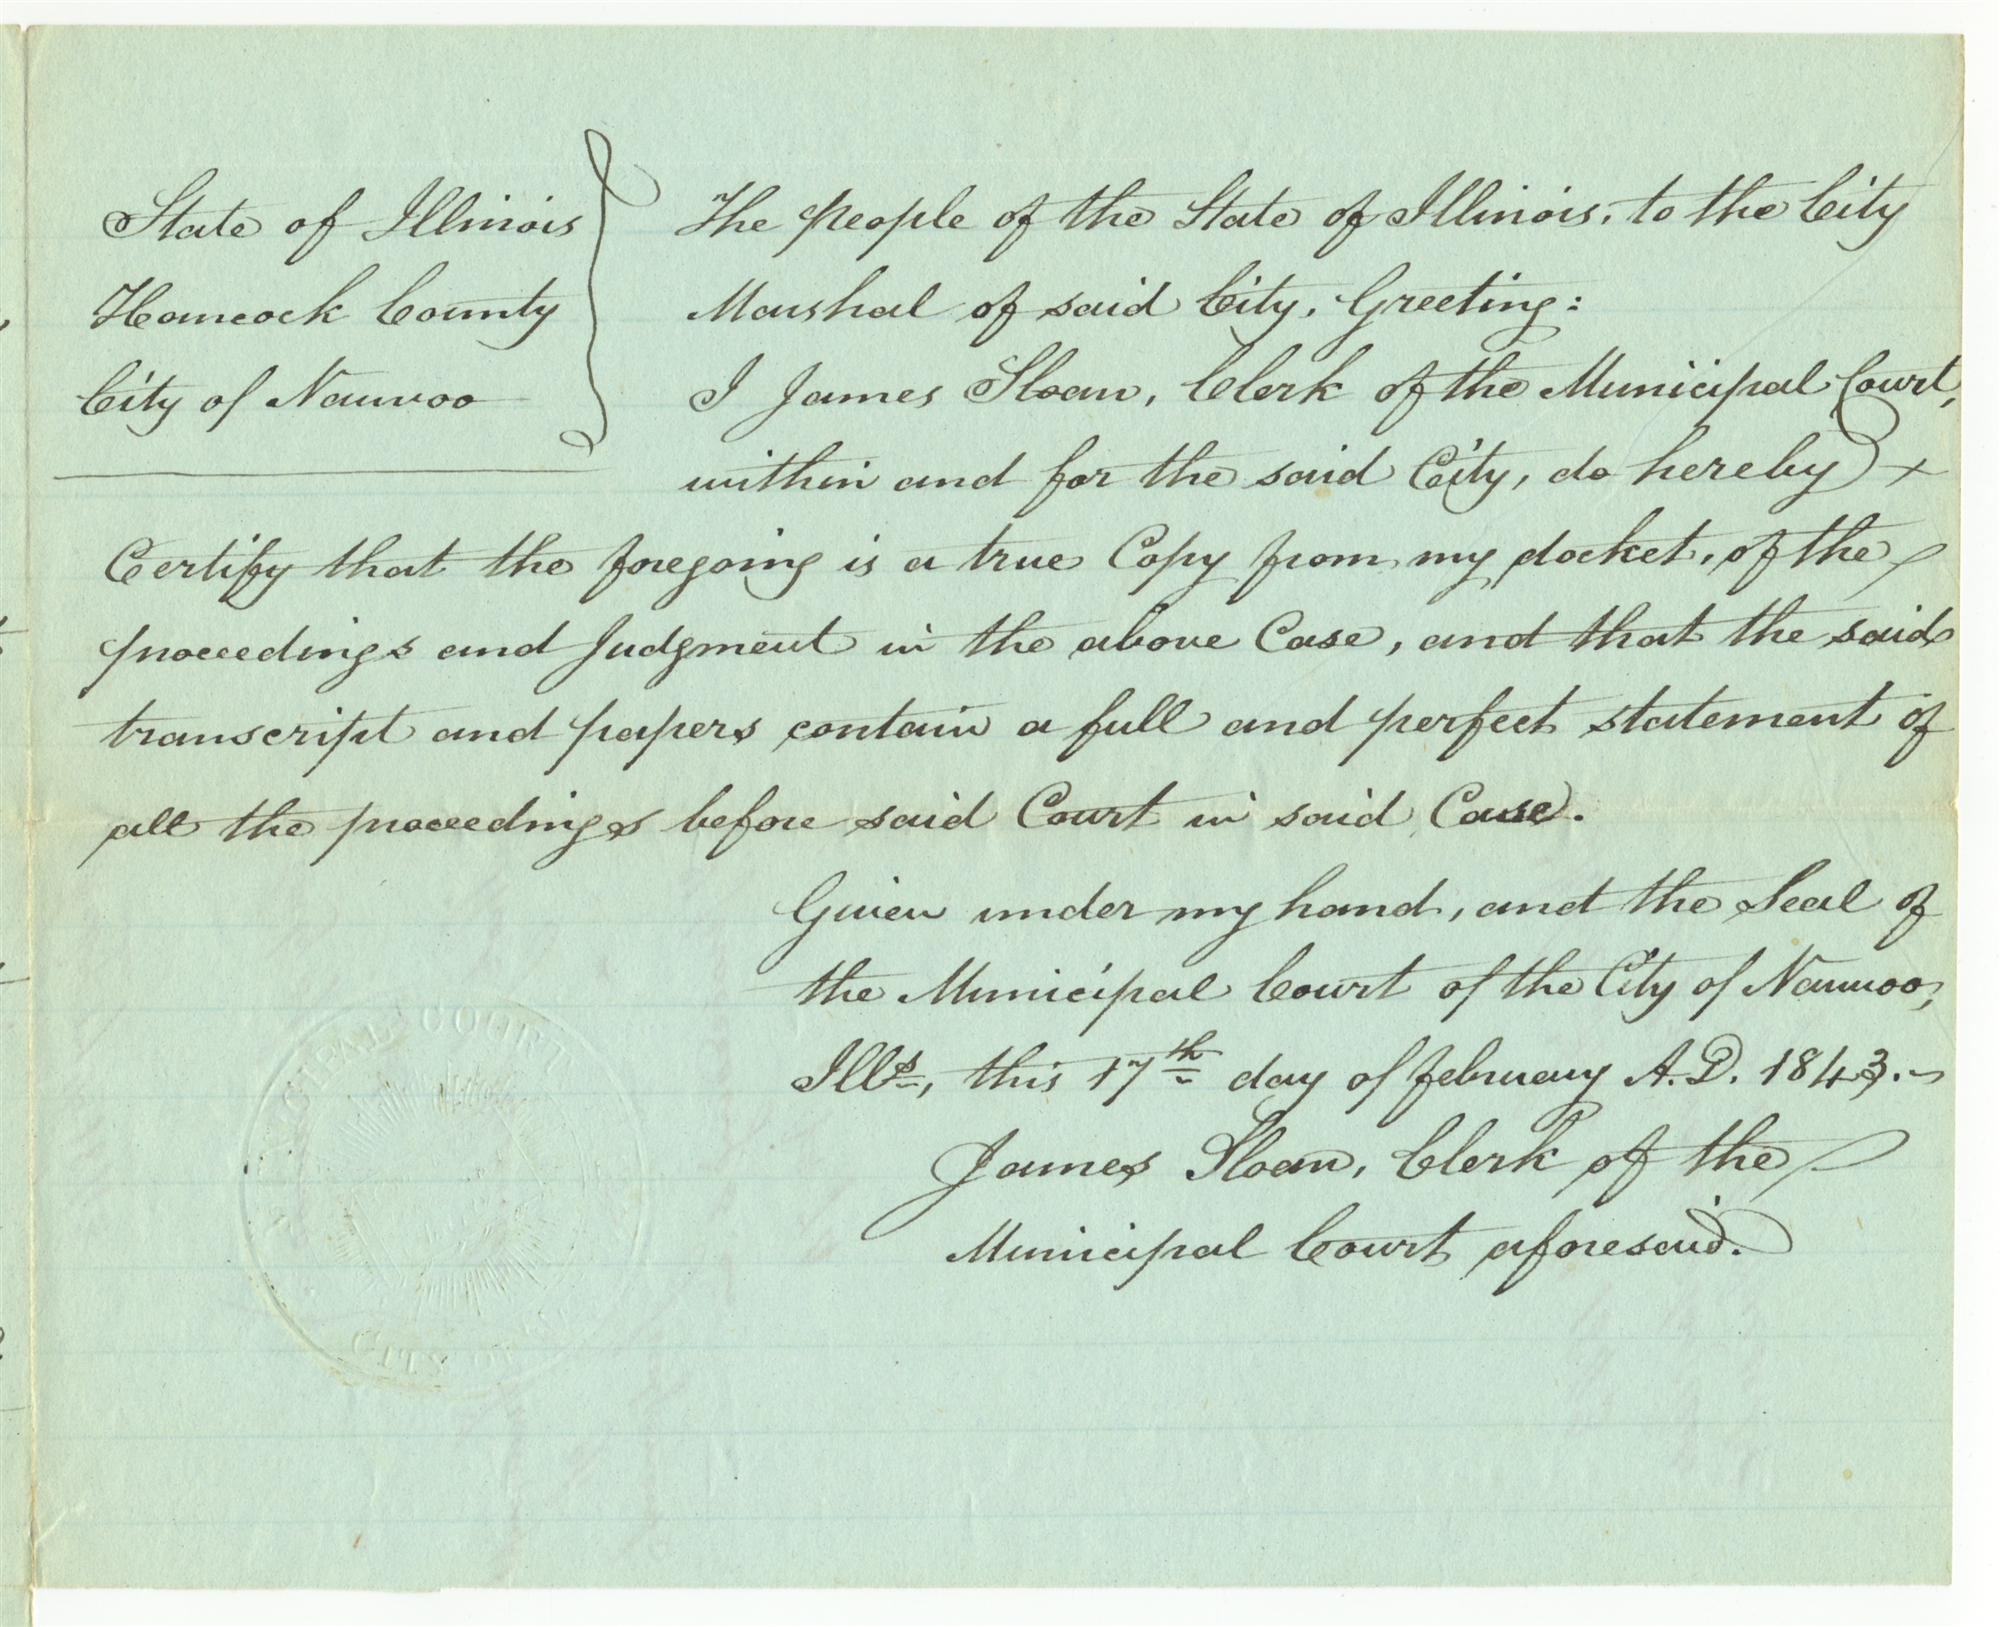 State of Illinois
Hancock County
City of Nauvoo
The people of the State of Illinois, to the City
Marshal of said City, Greeting:
I James Sloan, Clerk of the Municipal Court,
within and for the said City, do hereby
Certify that the foregoing is a true Copy from my docket, of the
proceedings and Judgment in the above Case, and that the said
transcript and papers contain a full and perfect statement of
all the proceedings before said Court in said Case.
Given under my hand, and the Seal of
the Municipal Court of the City of Nauvoo,
Ills, this 17th day of february A.D. 1843.
James Sloan, Clerk of the
Municipal Court aforesaid.
COURT
CITY OF